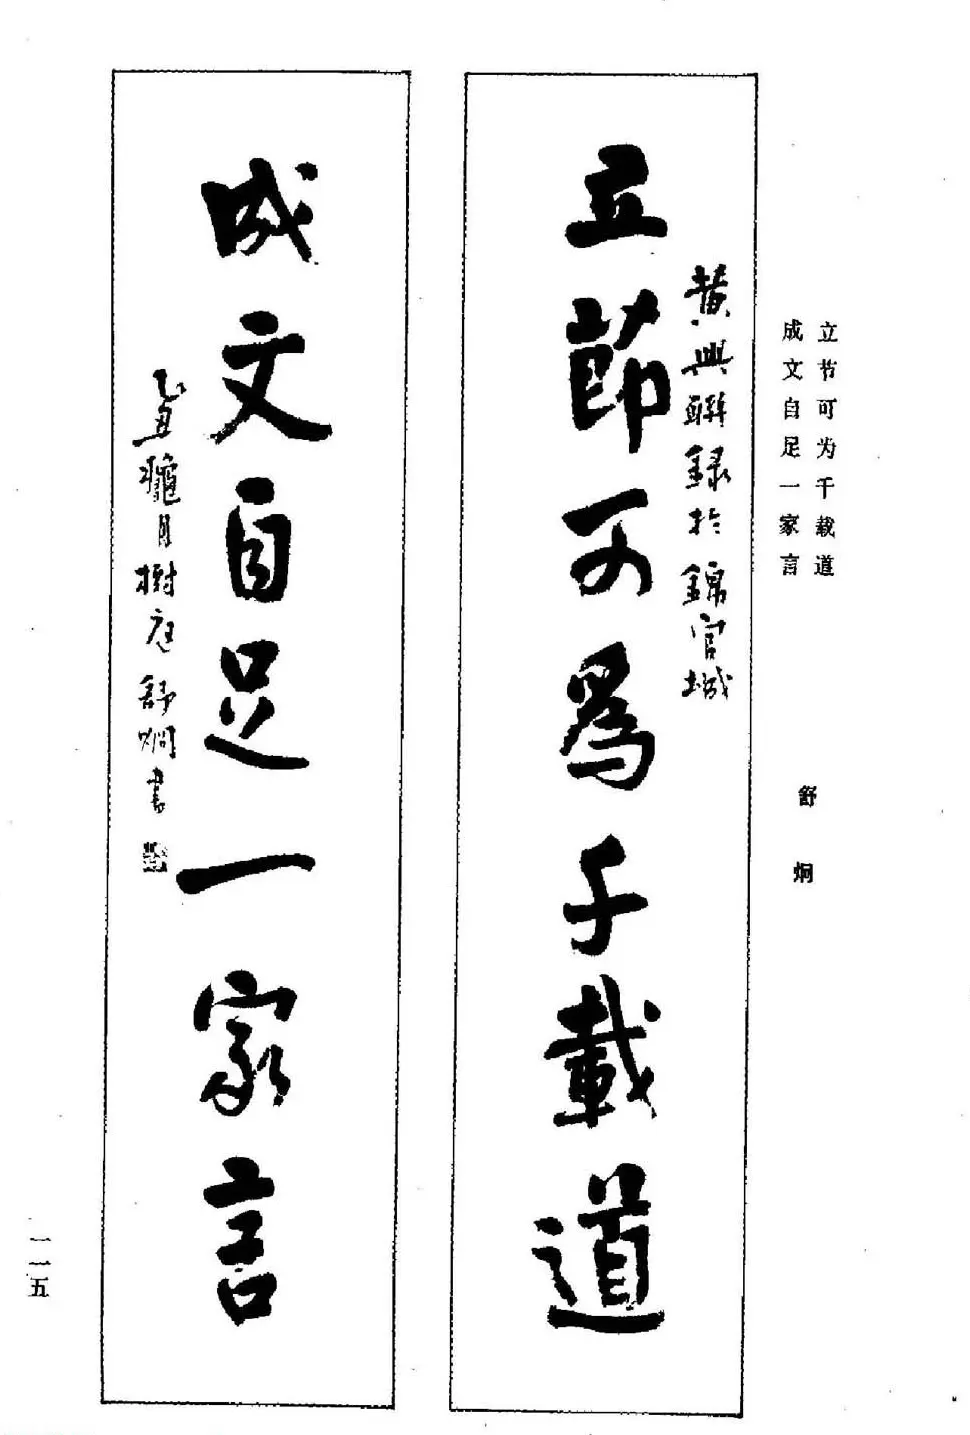 立节可为千载道
成文自足一家言
舒炯
黄興聯録於錦官城
立節可為千載道
成文自足一家言
乙丑臘月樹庭舒炯書
一一五